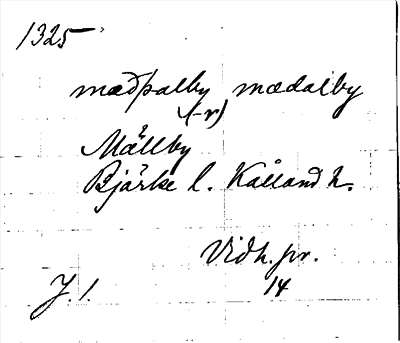 1325
mæðþalby mædalby
(-r)
Mällby
Bjärke l. Kålland h.
Vidh. pr.
J. 1. 14